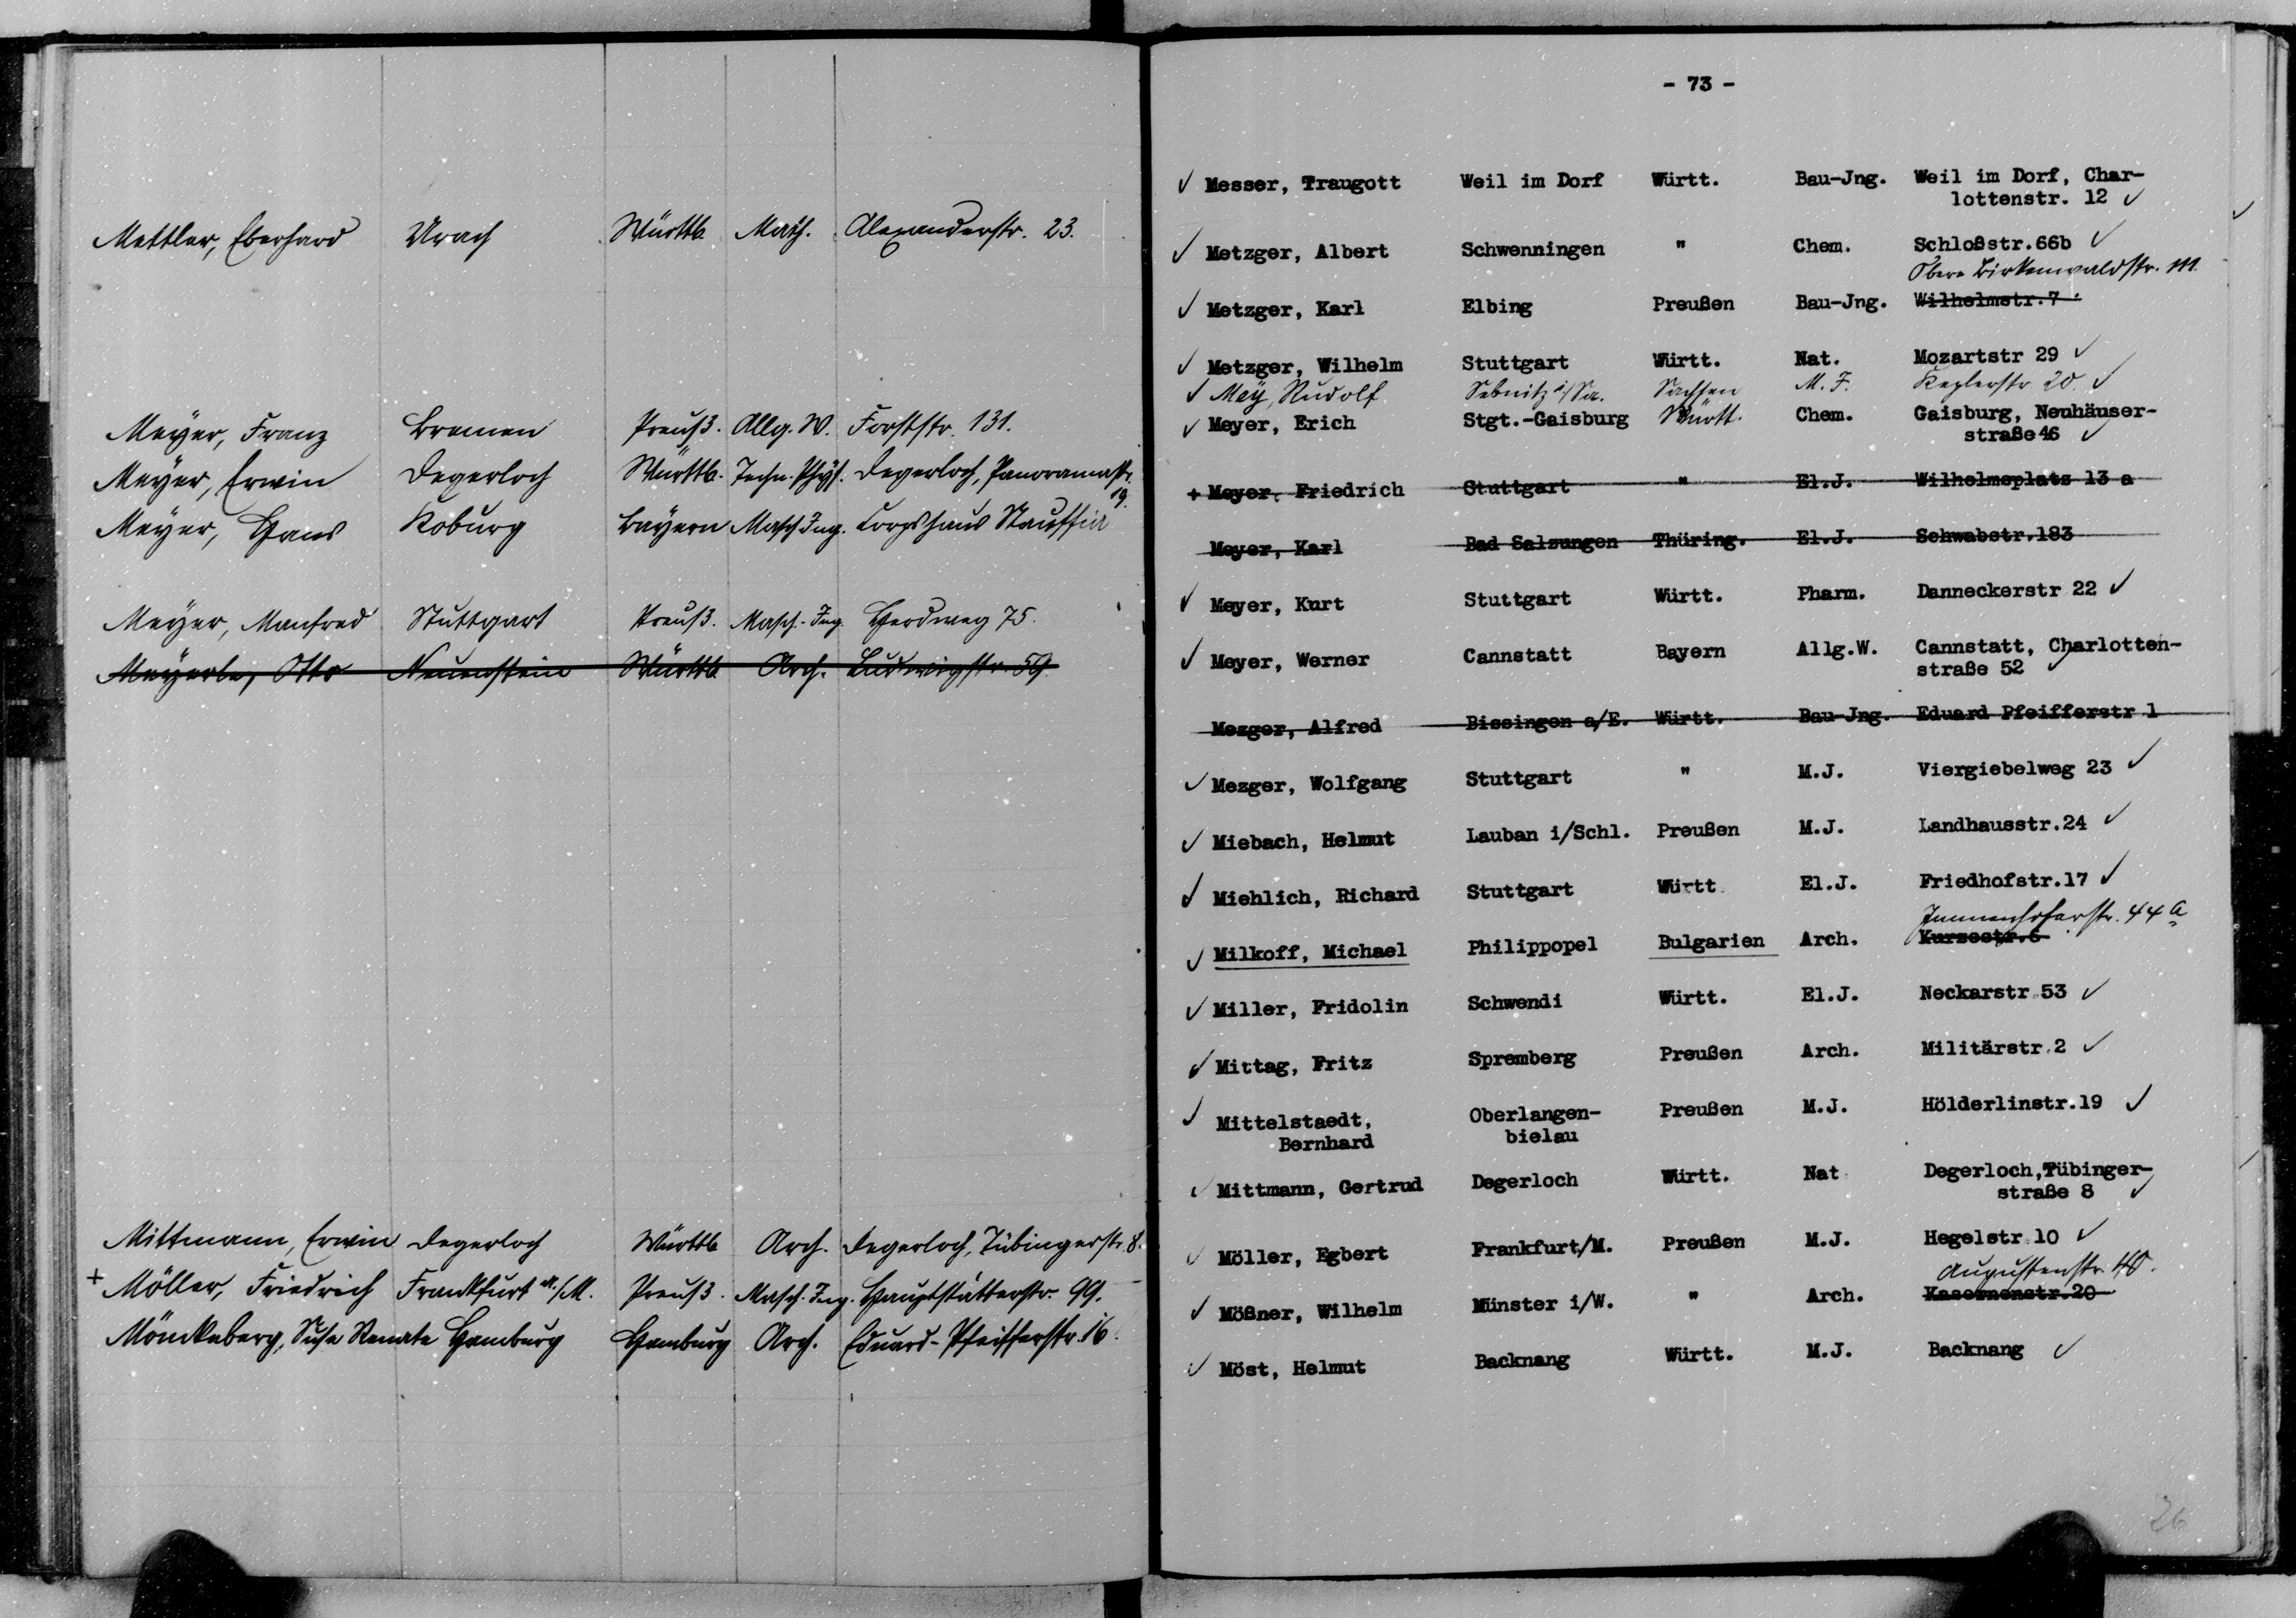 Mettler, Eberhard Urach Württb. Math. Alexanderstr. 23.
Meyer, Franz Bremen Preuß. Allg. W. Forststr. 131.
Meyer, Erwin Degerloch Württb. Techn. Phys. Degerloch, Panoramastr. 19.
Meyer, Hans Koburg Bayern Masch Ing. Corpshaus Stauffia
Meyer, Manfred Stuttgart Preuß. Masch.-Ing. Herdweg 75.
Meyerle, Otto Neuenstein Württb. Arch. Ludwigstr. 59
Mittmann, Erwin Degerloch Württb Arch. Degerloch, Tübingerstr. 8.
+ Möller, Friedrich Frankfurt a./M. Preuß. Masch. Ing. Hauptstätterstr. 99.
Mönckeberg, Suse Renate Hamburg Hamburg Arch. Eduard-Pfeifferstr. 16.
- 73 -
✓ Messer, Traugott Weil im Dorf Württ. Bau-Jng. Weil im Dorf, Char-
lottenstr. 12 ✓
✓ Metzger, Albert Schwenningen " Chem. Schloßstr.66b ✓
Obere Birkenwaldstr. 111.
✓ Metzger, Karl Elbing Preußen Bau-Jng. Wilhelmstr.7
✓ Metzger, Wilhelm Stuttgart Württ. Nat. Mozartstr 29 ✓
✓ Mey, Rudolf Sebnitz i/Sa. Sachsen M. J. Keplerstr. 20. ✓
✓ Meyer, Erich Stgt.-Gaisburg Württ. Chem. Gaisburg, Neuhäuser-
straße 46 ✓
+ Meyer, Friedrich Stuttgart " El.J. Wilhelmsplatz 13 a
Meyer, Karl Bad Salzungen Thüring. El.J. Schwabstr.183
✓ Meyer, Kurt Stuttgart Württ. Pharm. Danneckerstr 22 ✓
✓ Meyer, Werner Cannstatt Bayern Allg.W. Cannstatt, Charlotten-
straße 52 ✓
Mezger, Alfred Bissingen a/E. Württ. Bau-Jng. Eduard Pfeifferstr 1
✓ Mezger, Wolfgang Stuttgart " M.J. Viergiebelweg 23 ✓
✓ Miebach, Helmut Lauban i/Schl. Preußen M.J. Landhausstr.24 ✓
✓ Miehlich, Richard Stuttgart Württ. El.J. Friedhofstr.17 ✓
Immenhoferstr. 44 a
✓ Milkoff, Michael Philippopel Bulgarien Arch. Kurzestr.6
✓ Miller, Fridolin Schwendi Württ. El.J. Neckarstr.53 ✓
✓ Mittag, Fritz Spremberg Preußen Arch. Militärstr.2 ✓
✓ Mittelstaedt, Oberlangen- Preußen M.J. Hölderlinstr.19 ✓
Bernhard bielau
✓ Mittmann, Gertrud Degerloch Württ. Nat Degerloch,Tübinger-
straße 8 ✓
✓ Möller, Egbert Frankfurt/M. Preußen M.J. Hegelstr.10 ✓
Augustenstr. 40.
✓ Mößner, Wilhelm Münster i/W. " Arch. Kasernenstr.20
✓ Möst, Helmut Backnang Württ. M.J. Backnang ✓
26